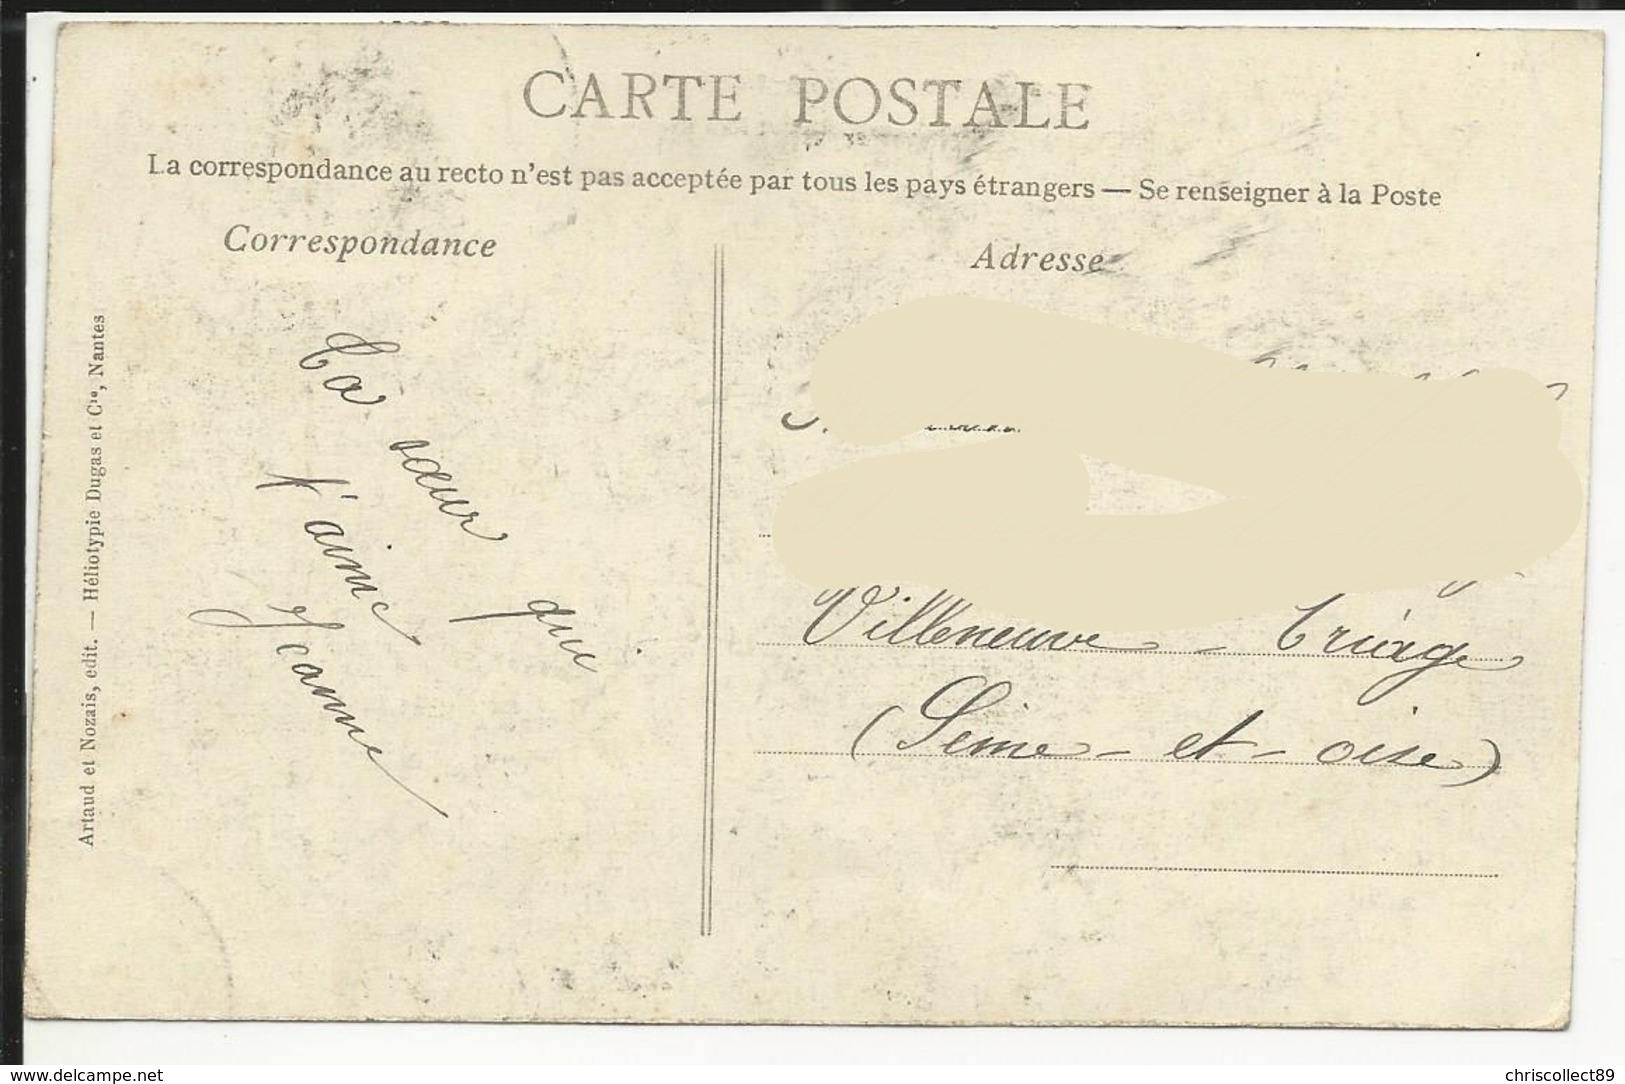 CARTE POSTALE
La correspondance au recto n'est pas acceptée par tous les pays étrangers — Se renseigner à la Poste
Correspondance
Adresse
Artaud et Nozais, edit. — Héliotypie Dugas et Cie, Nantes
Ta sœur qui
t'aime
Jeanne
Villeneuve - Triage
(Seine - et - oise)
www.delcampe.net
chriscollect89